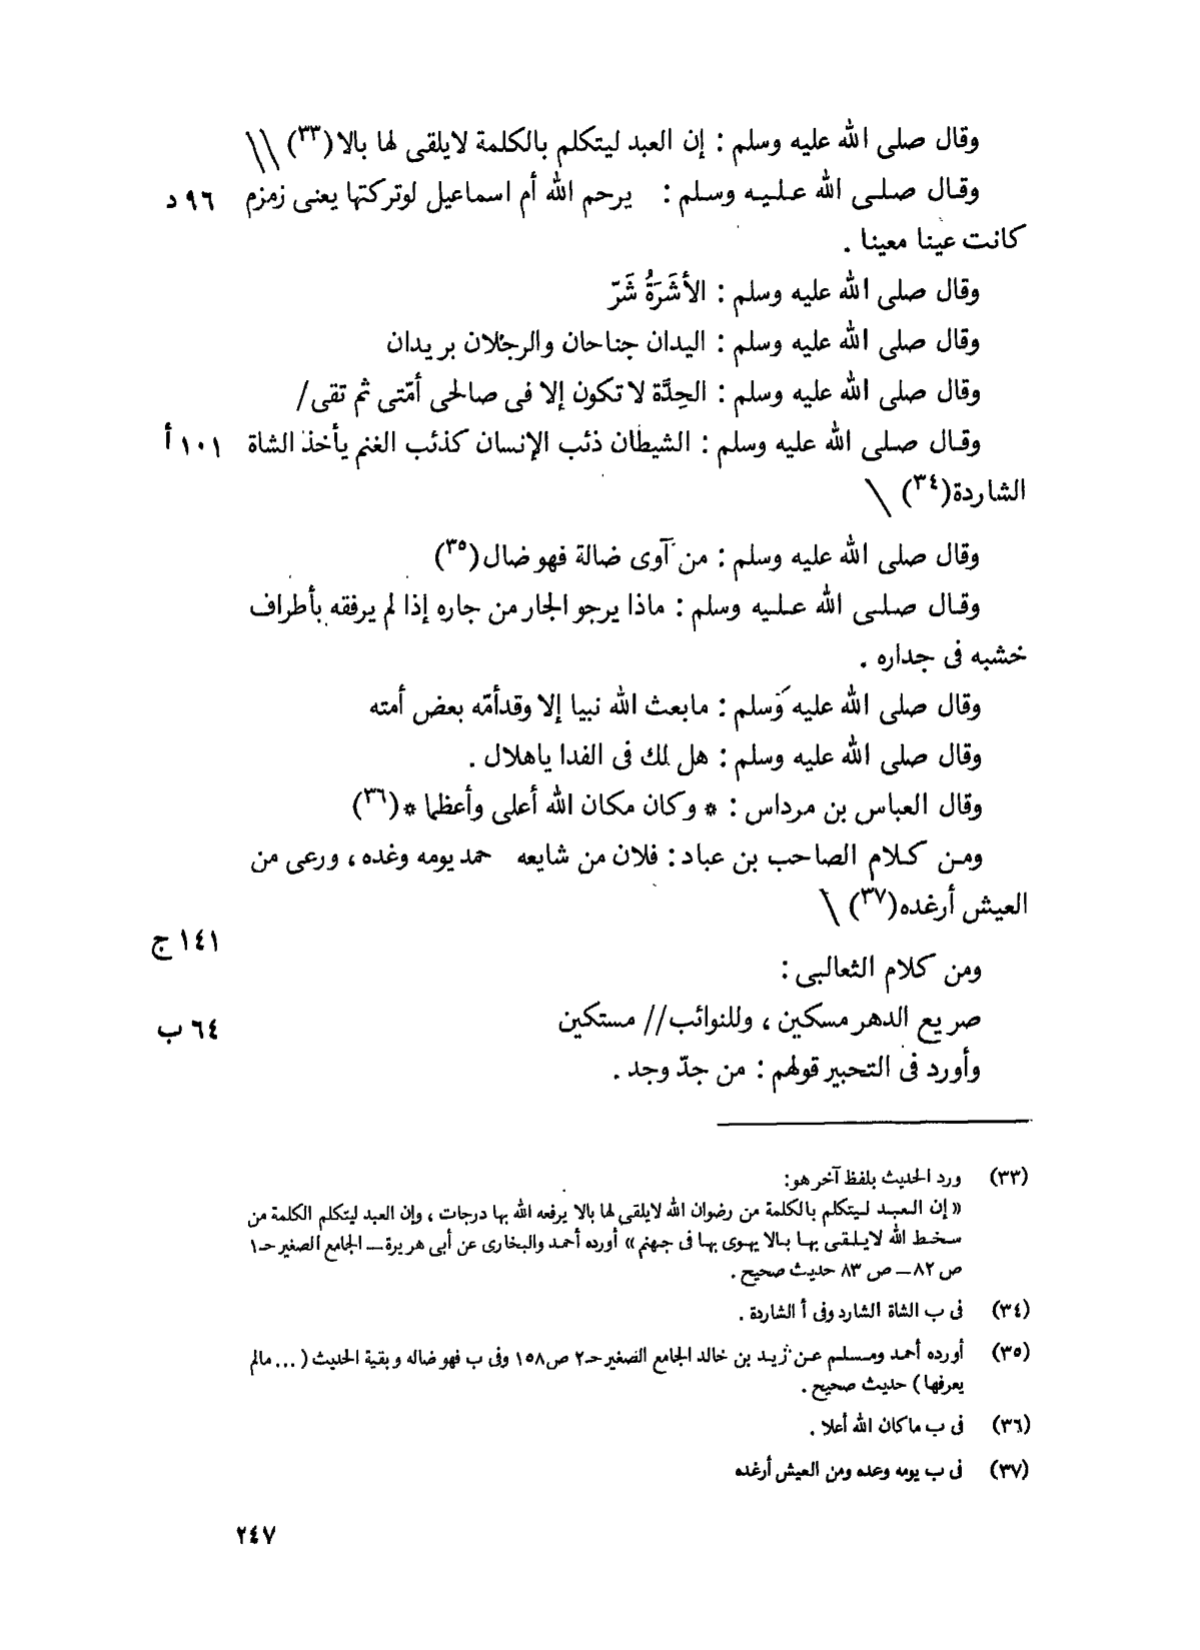 وقال صلى الله عليه وسلم : إن العبد ليتكلم بالكلمة لايلقى لها بالا (٣٣) \\
وقال صلى الله عليه وسلم : يرحم الله أم اسماعيل لوتركتها يعنى زمزم ٩٦ د
كانت عينا معينا .
وقال صلى الله عليه وسلم : الأشَرَةُ شَرّ
وقال صلى الله عليه وسلم : اليدان جناحان والرجلان بريدان
وقال صلى الله عليه وسلم : الحِدَّة لا تكون إلا فى صالحى أمّتى ثم تقى /
وقال صلى الله عليه وسلم : الشيطان ذئب الإنسان كذئب الغنم يأخذ الشاة ١٠١ أ
الشاردة (٣٤) \
وقال صلى الله عليه وسلم : من آوى ضالة فهو ضال (٣٥)
وقال صلى الله عليه وسلم : ماذا يرجو الجار من جاره إذا لم يرفقه بأطراف
خشبه فى جداره .
وقال صلى الله عليه وَسلم : مابعث الله نبيا إلا وقدأمّه بعض أمته
وقال صلى الله عليه وسلم : هل لك فى الغدا ياهلال .
وقال العباس بن مرداس : * وكان مكان الله أعلى وأعظما * (٣٦)
ومن كلام الصاحب بن عباد : فلان من شايعه حمد يومه وغده ، ورعى من
العيش أرغده (٣٧) \
١٤١ ج
ومن كلام الثعالبى :
صريع الدهر مسكين ، وللنوائب // مستكين ٦٤ ب
وأورد فى التحبير قولهم : من جدّ وجد .
(٣٣) ورد الحديث بلفظ آخر هو:
« إن العبد ليتكلم بالكلمة من رضوان الله لايلقى لها بالا يرفعه الله بها درجات ، وإن العبد ليتكلم الكلمة من
سخط الله لايلقى بها بالا يهوى بها فى جهنم » أورده أحمد والبخارى عن أبى هريرة ــ الجامع الصغير حـ١
ص ٨٢ ــ ص ٨٣ حديث صحيح .
(٣٤) فى ب الشاة الشارد وفى أ الشاردة .
(٣٥) أورده أحمد ومسلم عن زيد بن خالد الجامع الصغير حـ٢ ص١٥٨ وفى ب فهو ضاله وبقية الحديث ( ... مالم
يعرفها ) حديث صحيح .
(٣٦) فى ب ماكان الله أعلا .
(٣٧) فى ب يومه وعده ومن العيش أرغده
٢٤٧